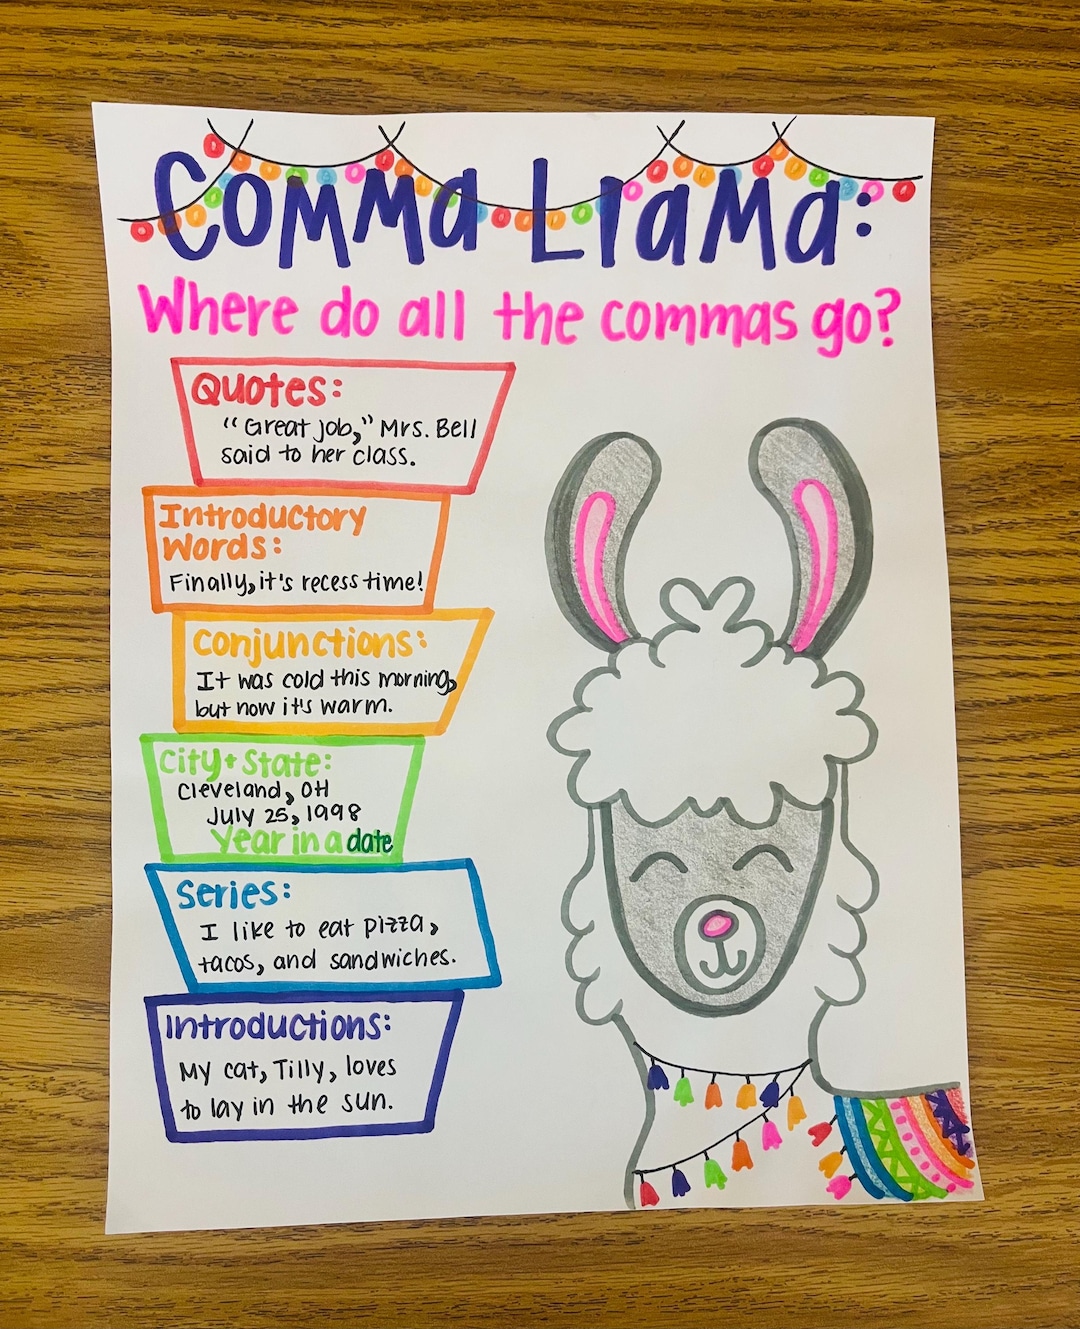 Comma Llama:
Where do all the commas go?
Quotes:
"Great job," Mrs. Bell
said to her class.
Introductory
Words:
Finally, it's recess time!
Conjunctions:
It was cold this morning,
but now it's warm.
City + State:
Cleveland, OH
July 25, 1998
Year in a date
Series:
I like to eat pizza,
tacos, and sandwiches.
Introductions:
My cat, Tilly, loves
to lay in the sun.